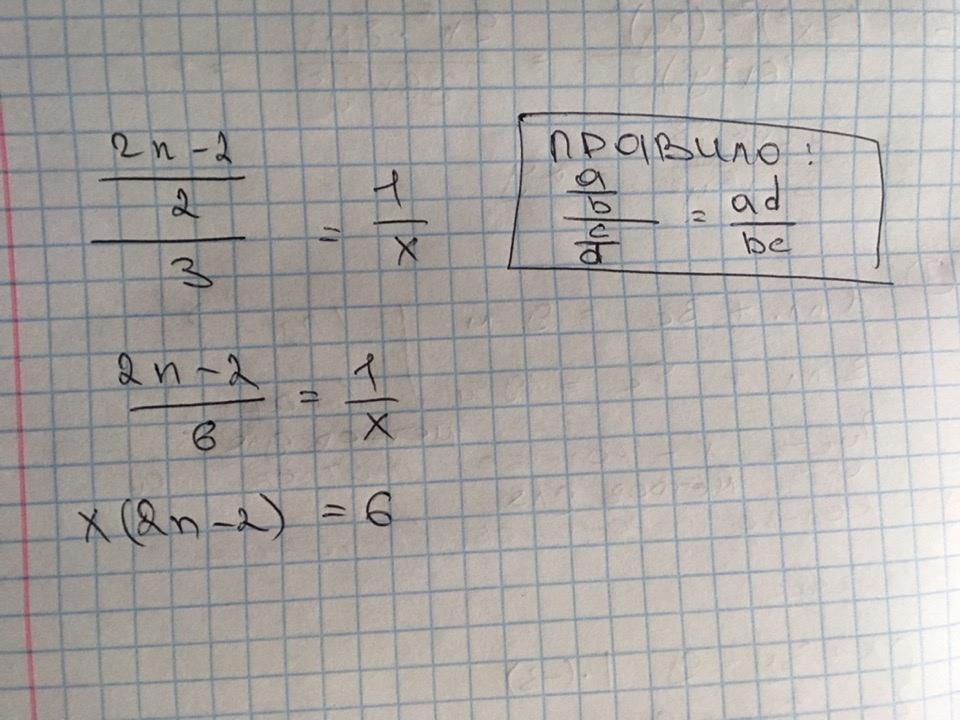 2n-2
2
3
=
1
x
правило:
a
b
c
d
=
ad
bc
2n-2
6
=
1
x
x(2n-2) = 6